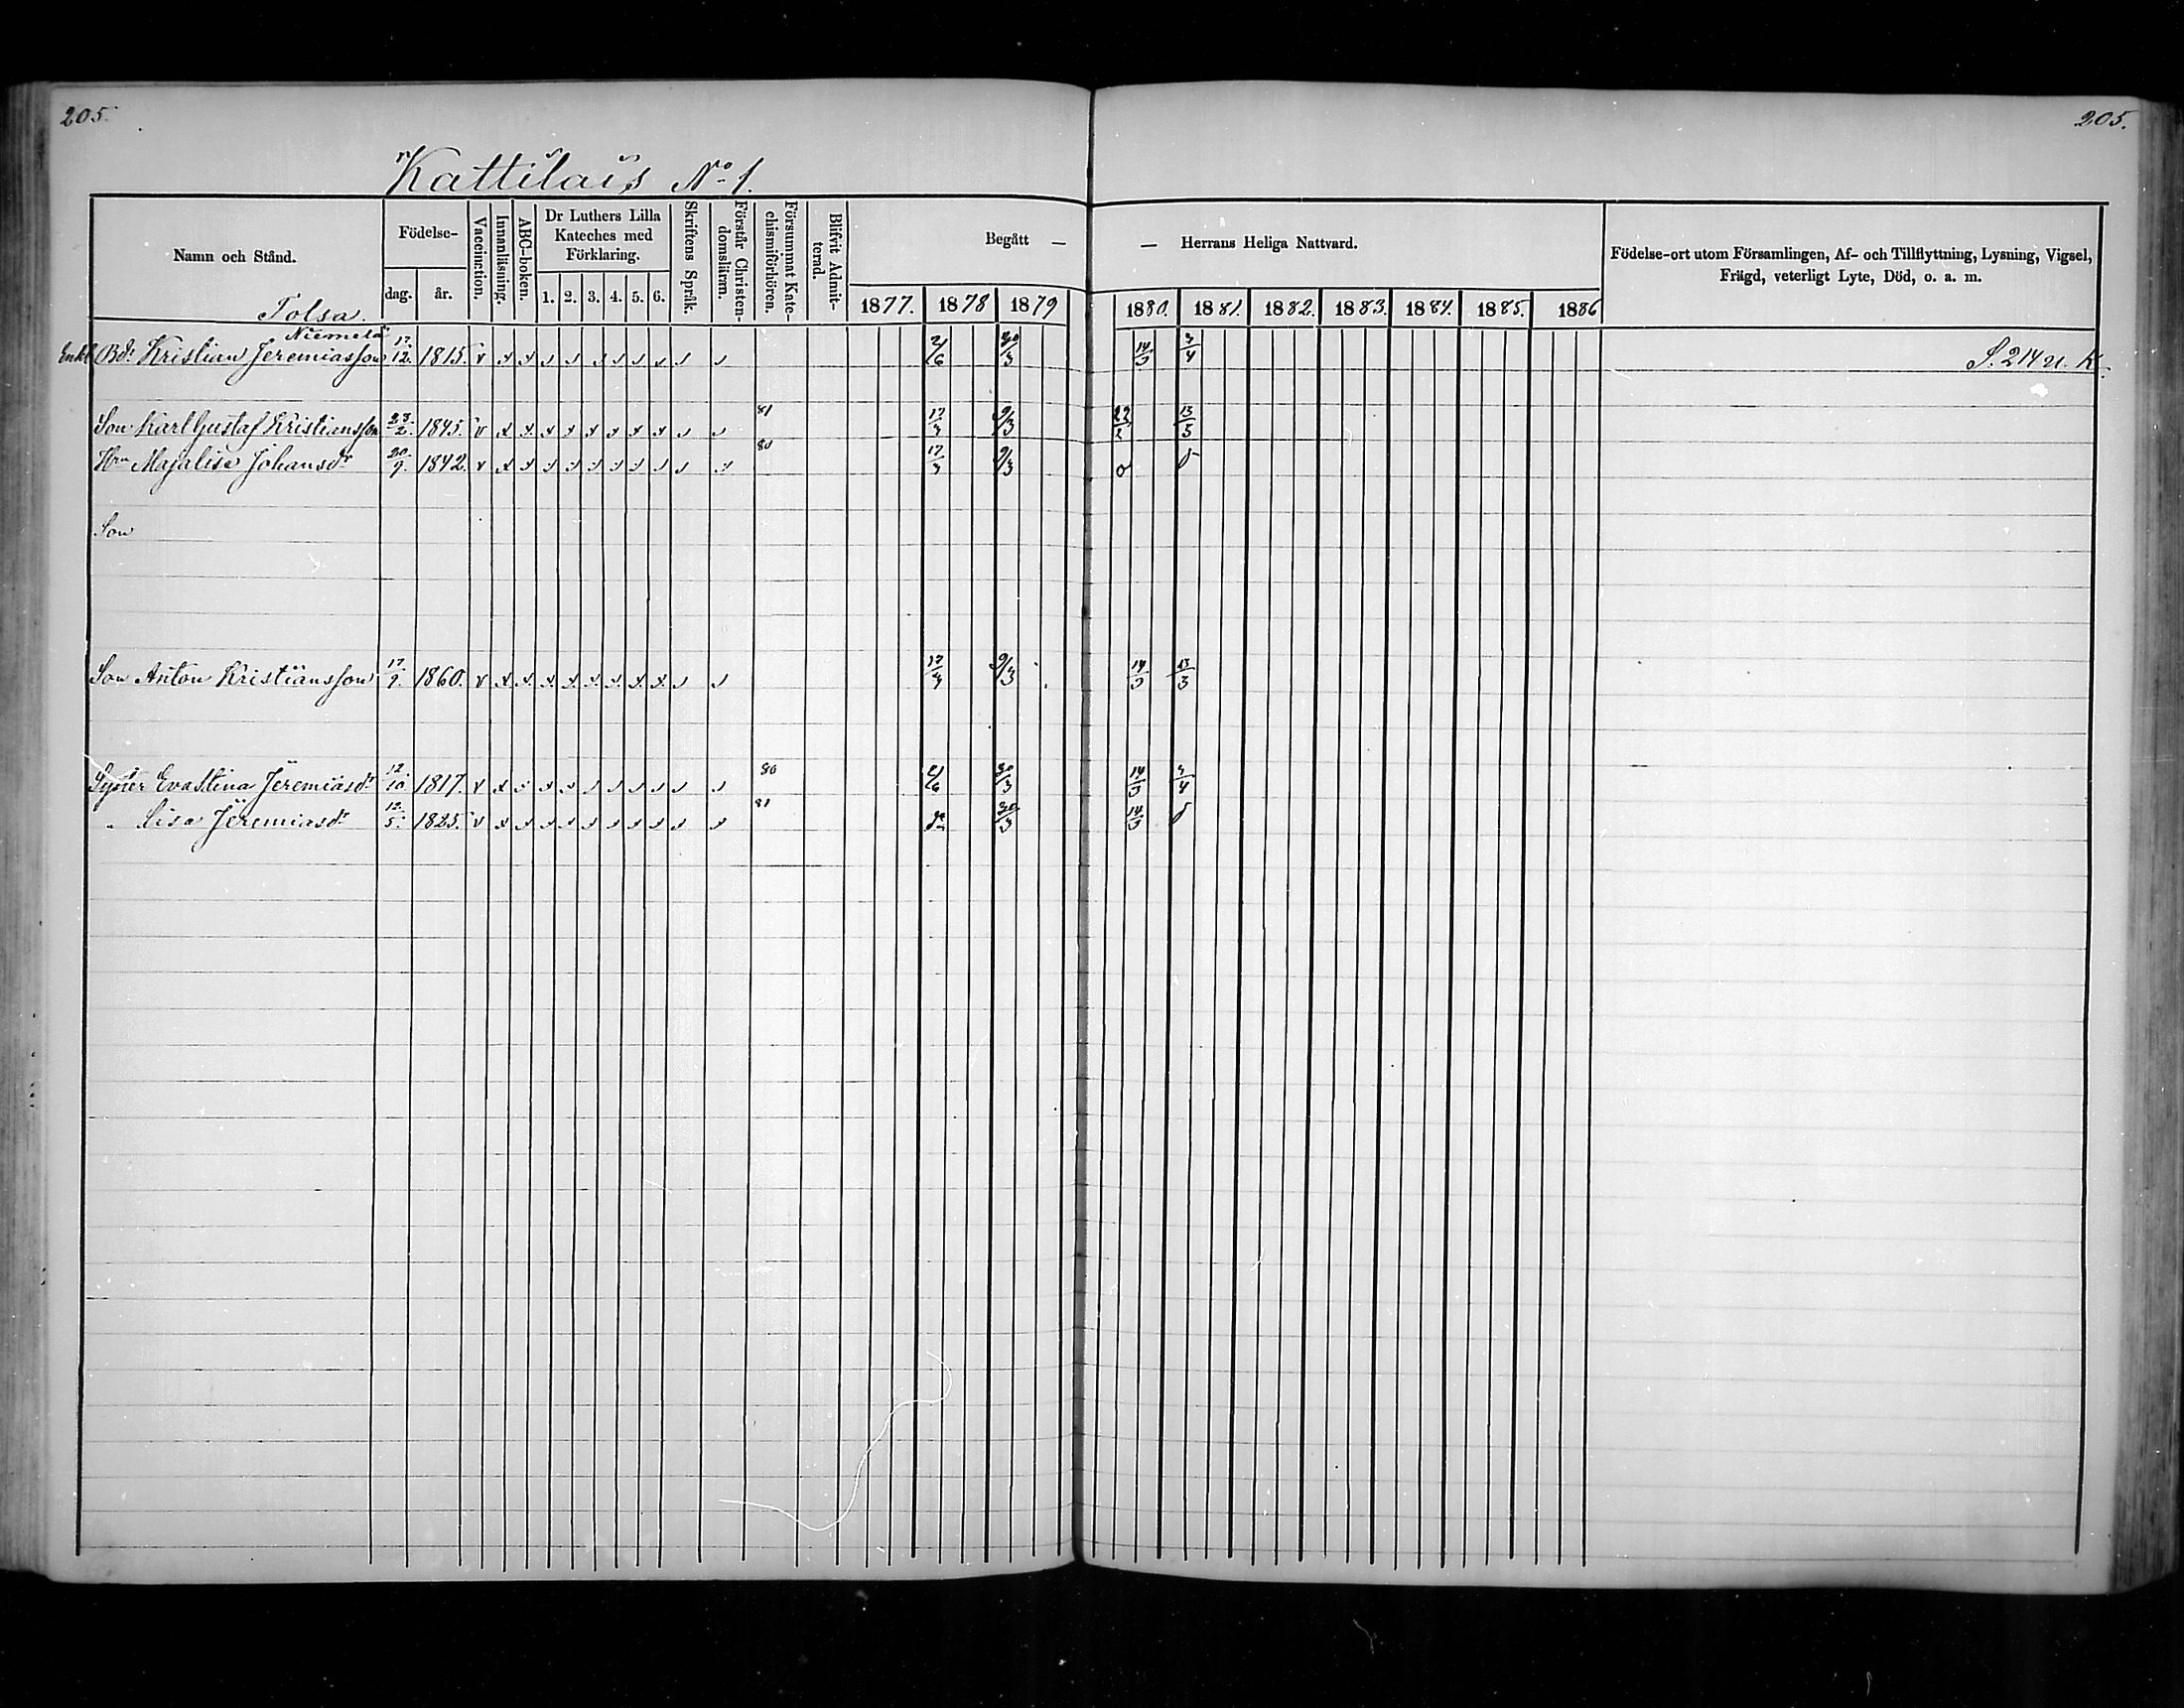 205.
205.
Kattilais No 1.
Namn och Stånd.
Födelse-
dag. år.
Vaccinction.
Innanläsning.
ABC-boken.
Dr Luthers Lilla Kateches med Förklaring.
1. 2. 3. 4. 5. 6.
Skriftens Språk.
Förstår Christendomsläran.
Försummat Katechismiförhören.
Blifvit Admitterad.
Begått — — Herrans Heliga Nattvard.
1877. 1878 1879 1880. 1881. 1882. 1883. 1884. 1885. 1886
Födelse-ort utom Församlingen, Af- och Tillflyttning, Lysning, Vigsel,
Frägd, veterligt Lyte, Död, o. a. m.
Tolsa.
Niemelä
Enkl Bdr Kristian Jeremiasson 17/12. 1815. 2/6 30/3 14/3 3/4 S. 214 u. K.
Son Karl Gustaf Kristiansson 23/2. 1845. 81 17/3 9/3 22/2 13/3
Hru Majalisa Johansdr 20/9. 1842. 80 17/3 9/3
Son
Son Anton Kristiansson 17/9. 1860. 17/3 9/3 14/3 13/3
Syster Evastina Jeremiasdr 12/10 1817. 80 2/6 30/3 14/3 3/4
" Lisa Jeremiasdr 12/5. 1825. 81 30/3 14/3